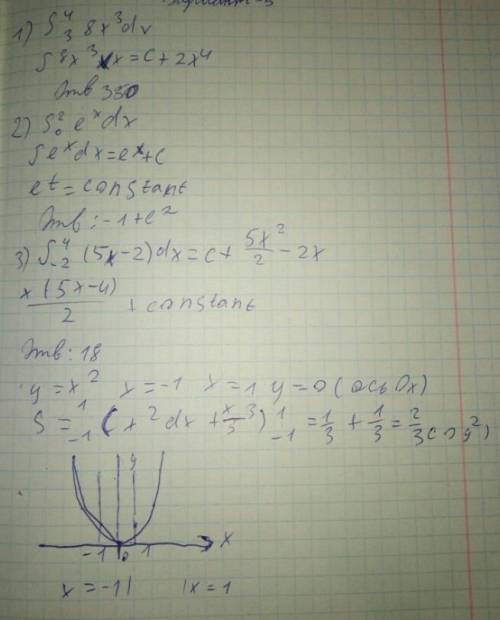 Вариант-3
1) ∫₃⁴ 8x³dx
∫8x³ x = C + 2x⁴
Отв 350
2) ∫₀² eˣdx
∫eˣdx = eˣ + C
et = constant
Отв: -1 + e²
3) ∫₋₂⁴ (5x-2)dx = C + 5x²/2 - 2x
x(5x-4)/2 + constant
Отв: 18
y = x² x = -1 x = 1 y = 0 (ось Ox)
S = ¹₋₁ (x² dx + x³/3)¹₋₁ = 1/3 + 1/3 = 2/3
y
-1 0 1 x
x = -1 x = 1